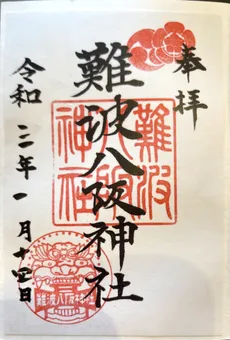 奉拝
難波八阪神社
令和二年一月十四日
難波
八阪
神社
難波八阪神社